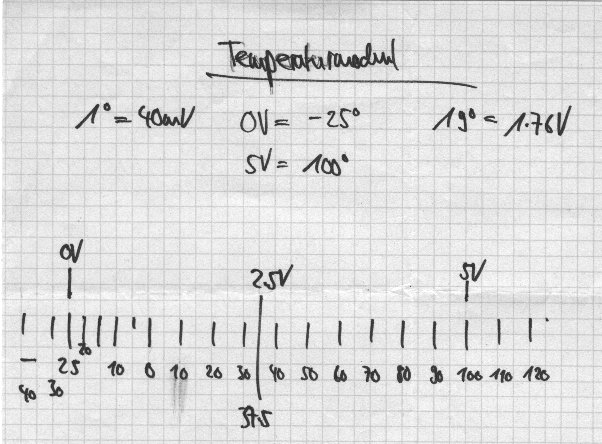 Temperaturmodul
1° = 40mV 0V = -25° 19° = 1.76V
5V = 100°
0V 2.5V 5V
- 25 20 10 0 10 20 30 40 50 60 70 80 90 100 110 120
40 30
37.5